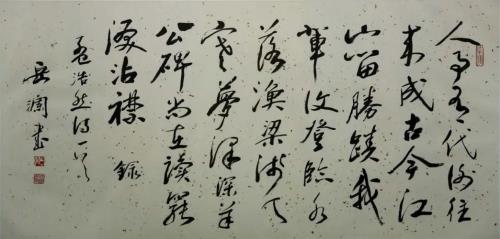 人事有代謝往
来成古今江
山留勝蹟我
輩復登臨水
落漁梁淺天
寒夢澤深羊
公碑尚在讀罷
淚沾襟 錄
孟浩然詩一首
岳 書